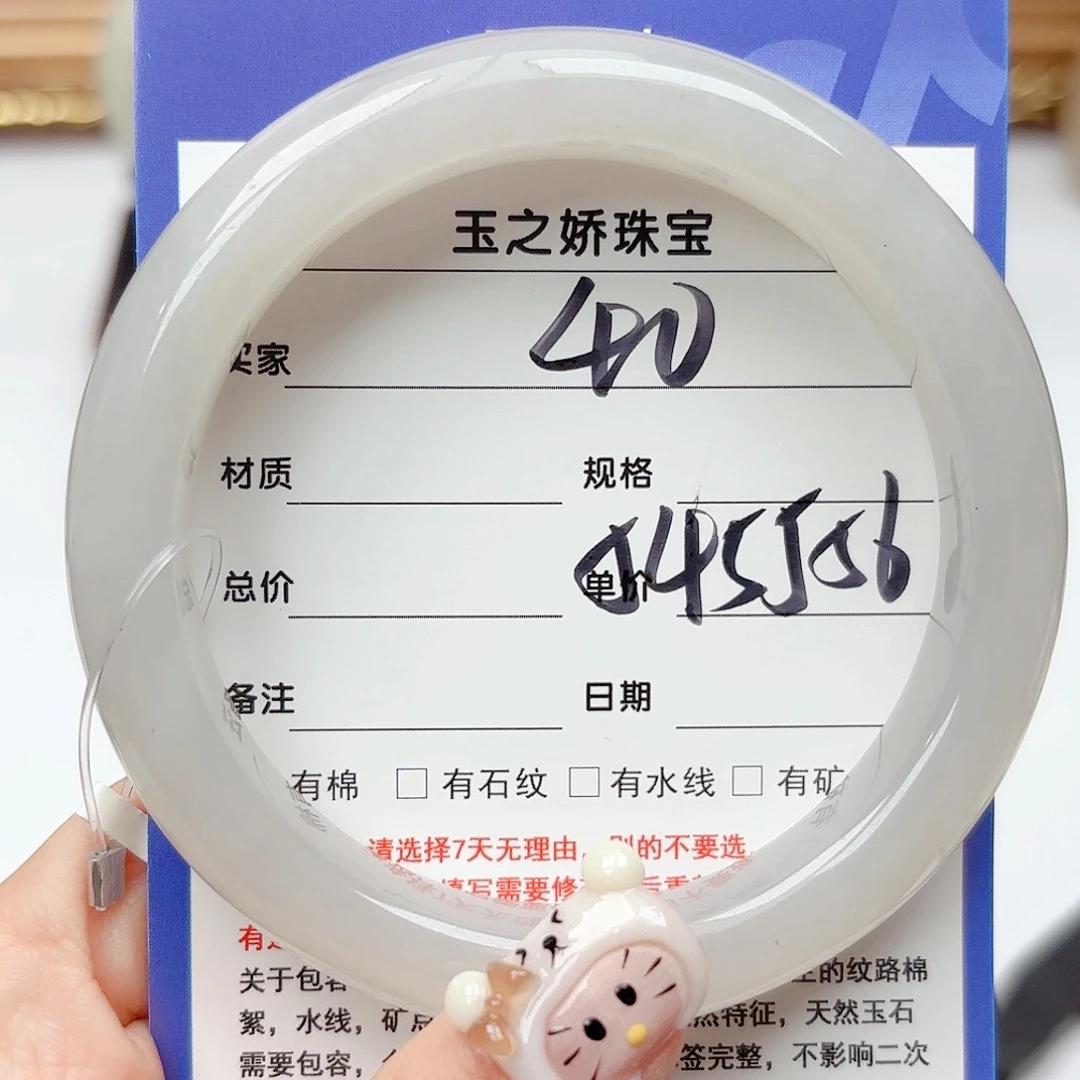 玉之娇珠宝
买家 40
材质 规格
总价 单价
备注 日期
有棉 □ 有石纹 □ 有水线 □ 有矿
请选择7天无理由,别的不要选
填写需要修
关于包容 的纹路棉
絮，水线，矿点 然特征，天然玉石
需要包容， 签完整，不影响二次